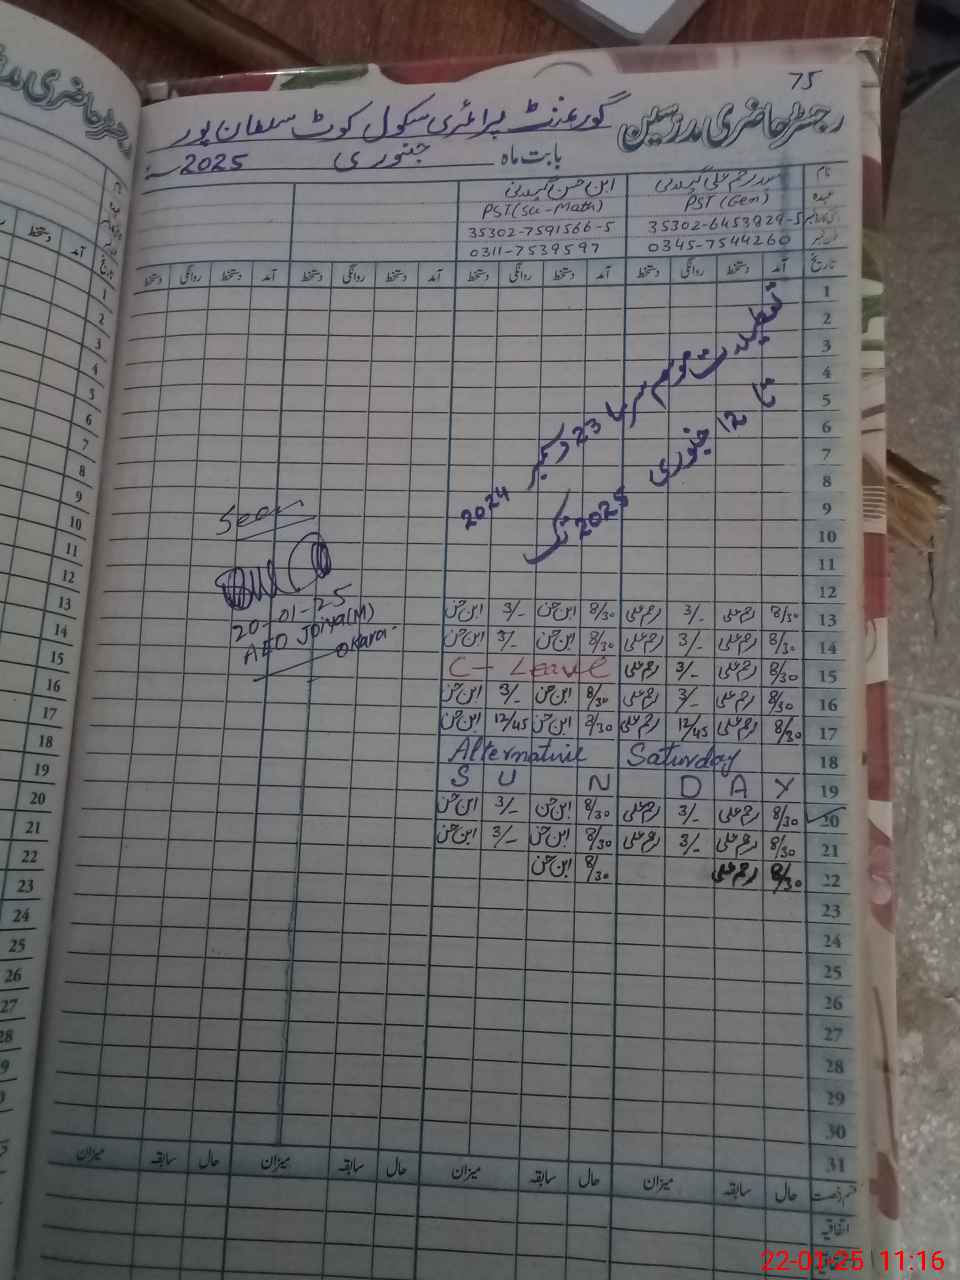 75
رجسٹر حاضری مدرسین گورنمنٹ پرائمری سکول کوٹ سلطان پور
بابت ماہ جنوری 2025
نام ابن حسن گیلانی
عہدہ PST (Gen) PST (Sci-Math)
35302-6453929-5 35302-7591566-5
0345-7544260 0311-7539597
تاریخ آمد دستخط روانگی دستخط آمد دستخط روانگی دستخط آمد دستخط روانگی دستخط آمد دستخط روانگی دستخط
1
2
3
4
5
6
7
8
9
10
11
12
تعطیلات موسم سرما 23 دسمبر 2024
تا 12 جنوری 2025 تک
Seen
20-01-25
AEO Joiya (M)
Okara
13 8/30 رحم علی 3/- رحم علی 8/30 ابن حسن 3/- ابن حسن
14 8/30 رحم علی 3/- رحم علی 8/30 ابن حسن 3/- ابن حسن
15 8/30 رحم علی 3/- رحم علی C - Leave
16 8/30 رحم علی 3/- رحم علی 8/30 ابن حسن 3/- ابن حسن
17 8/30 رحم علی 12/45 رحم علی 8/30 ابن حسن 12/45 ابن حسن
18 Alternative Saturday
19 S U N D A Y
20 8/30 رحم علی 3/- رحم علی 8/30 ابن حسن 3/- ابن حسن
21 8/30 رحم علی 3/- رحم علی 8/30 ابن حسن 3/- ابن حسن
22 8/30 رحم علی 8/30 ابن حسن
23
24
25
26
27
28
29
30
31
قسم رخصت حال سابقہ میزان حال سابقہ میزان حال سابقہ میزان حال سابقہ میزان
اتفاقیہ
22-01-25 11:16